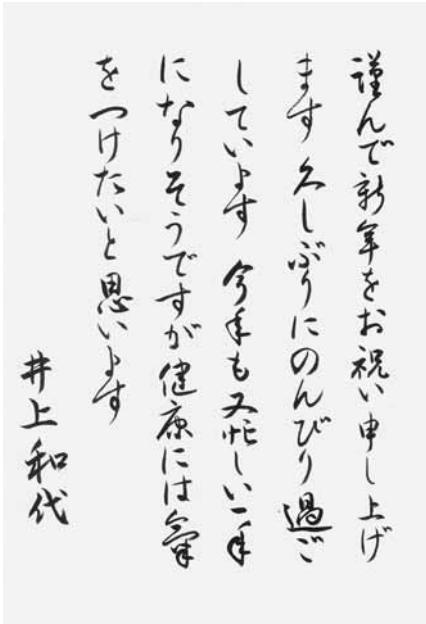 謹んで新年をお祝い申し上げ
ます 久しぶりにのんびり過ご
しています 今年も又忙しい一年
になりそうですが健康には氣
をつけたいと思います
井上和代